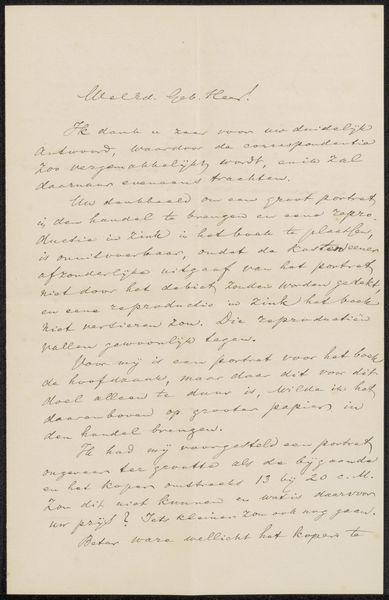 WelEd. Geb. Heer!
Ik dank u zeer voor uw duidelijk
antwoord, waardoor de correspondentie
zoo vergemakkelijkt wordt, en ik zal
daarnaar eveneens trachten.
Uw denkbeeld om een groot portret
in den handel te brengen en eene repro-
ductie in zink in het boek te plaatsen,
is onuitvoerbaar, omdat de kosten eener
afzonderlijke uitgaaf van het portret
niet door het debiet zouden worden gedekt,
en eene reproductie in zink het boek
niet versieren zou. Die reproductiën
vallen gewoonlijk tegen.
Voor mij is een portret voor het boek
de hoofdzaak, maar daar dit voor dit
doel alleen te duur is, wilde ik het
daarenboven op grooter papier in
den handel brengen.
Ik had mij voorgesteld een portret
ongeveer ter grootte als de bijgaande
en het koper omstreeks 13 bij 20 c.M.
Zou dit niet kunnen en wat is daarvoor
uw prijs? Iets kleiner zou ook nog gaan.
Beter ware wellicht het koper te